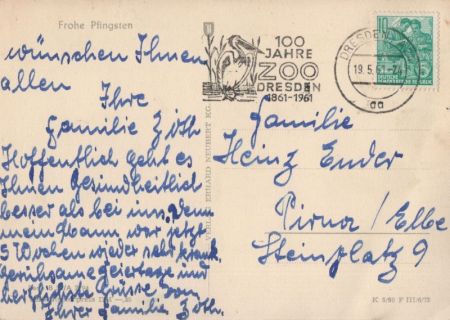 Frohe Pfingsten
wünschen Ihnen
allen
Ihre
Familie Zöth.
Hoffentlich geht es
Ihnen Gesundheitlich
besser als bei uns, denn
mein Mann war jetzt
5 Wochen wieder sehr krank.
Geruhsame Feiertage und
herzlichste Grüsse von
Ihrer Familie Zöth.
VERLAG ERHARD NEUBERT KG
100
JAHRE
ZOO
DRESDEN
1861-1961
DRESDEN
19.5.61
aa
10
5
DEUTSCHE
DEMOKRATISCHE REPUBLIK
Familie
Heinz Ender
Pirna/Elbe
Steinplatz 9
K 5/60 F III/6/73